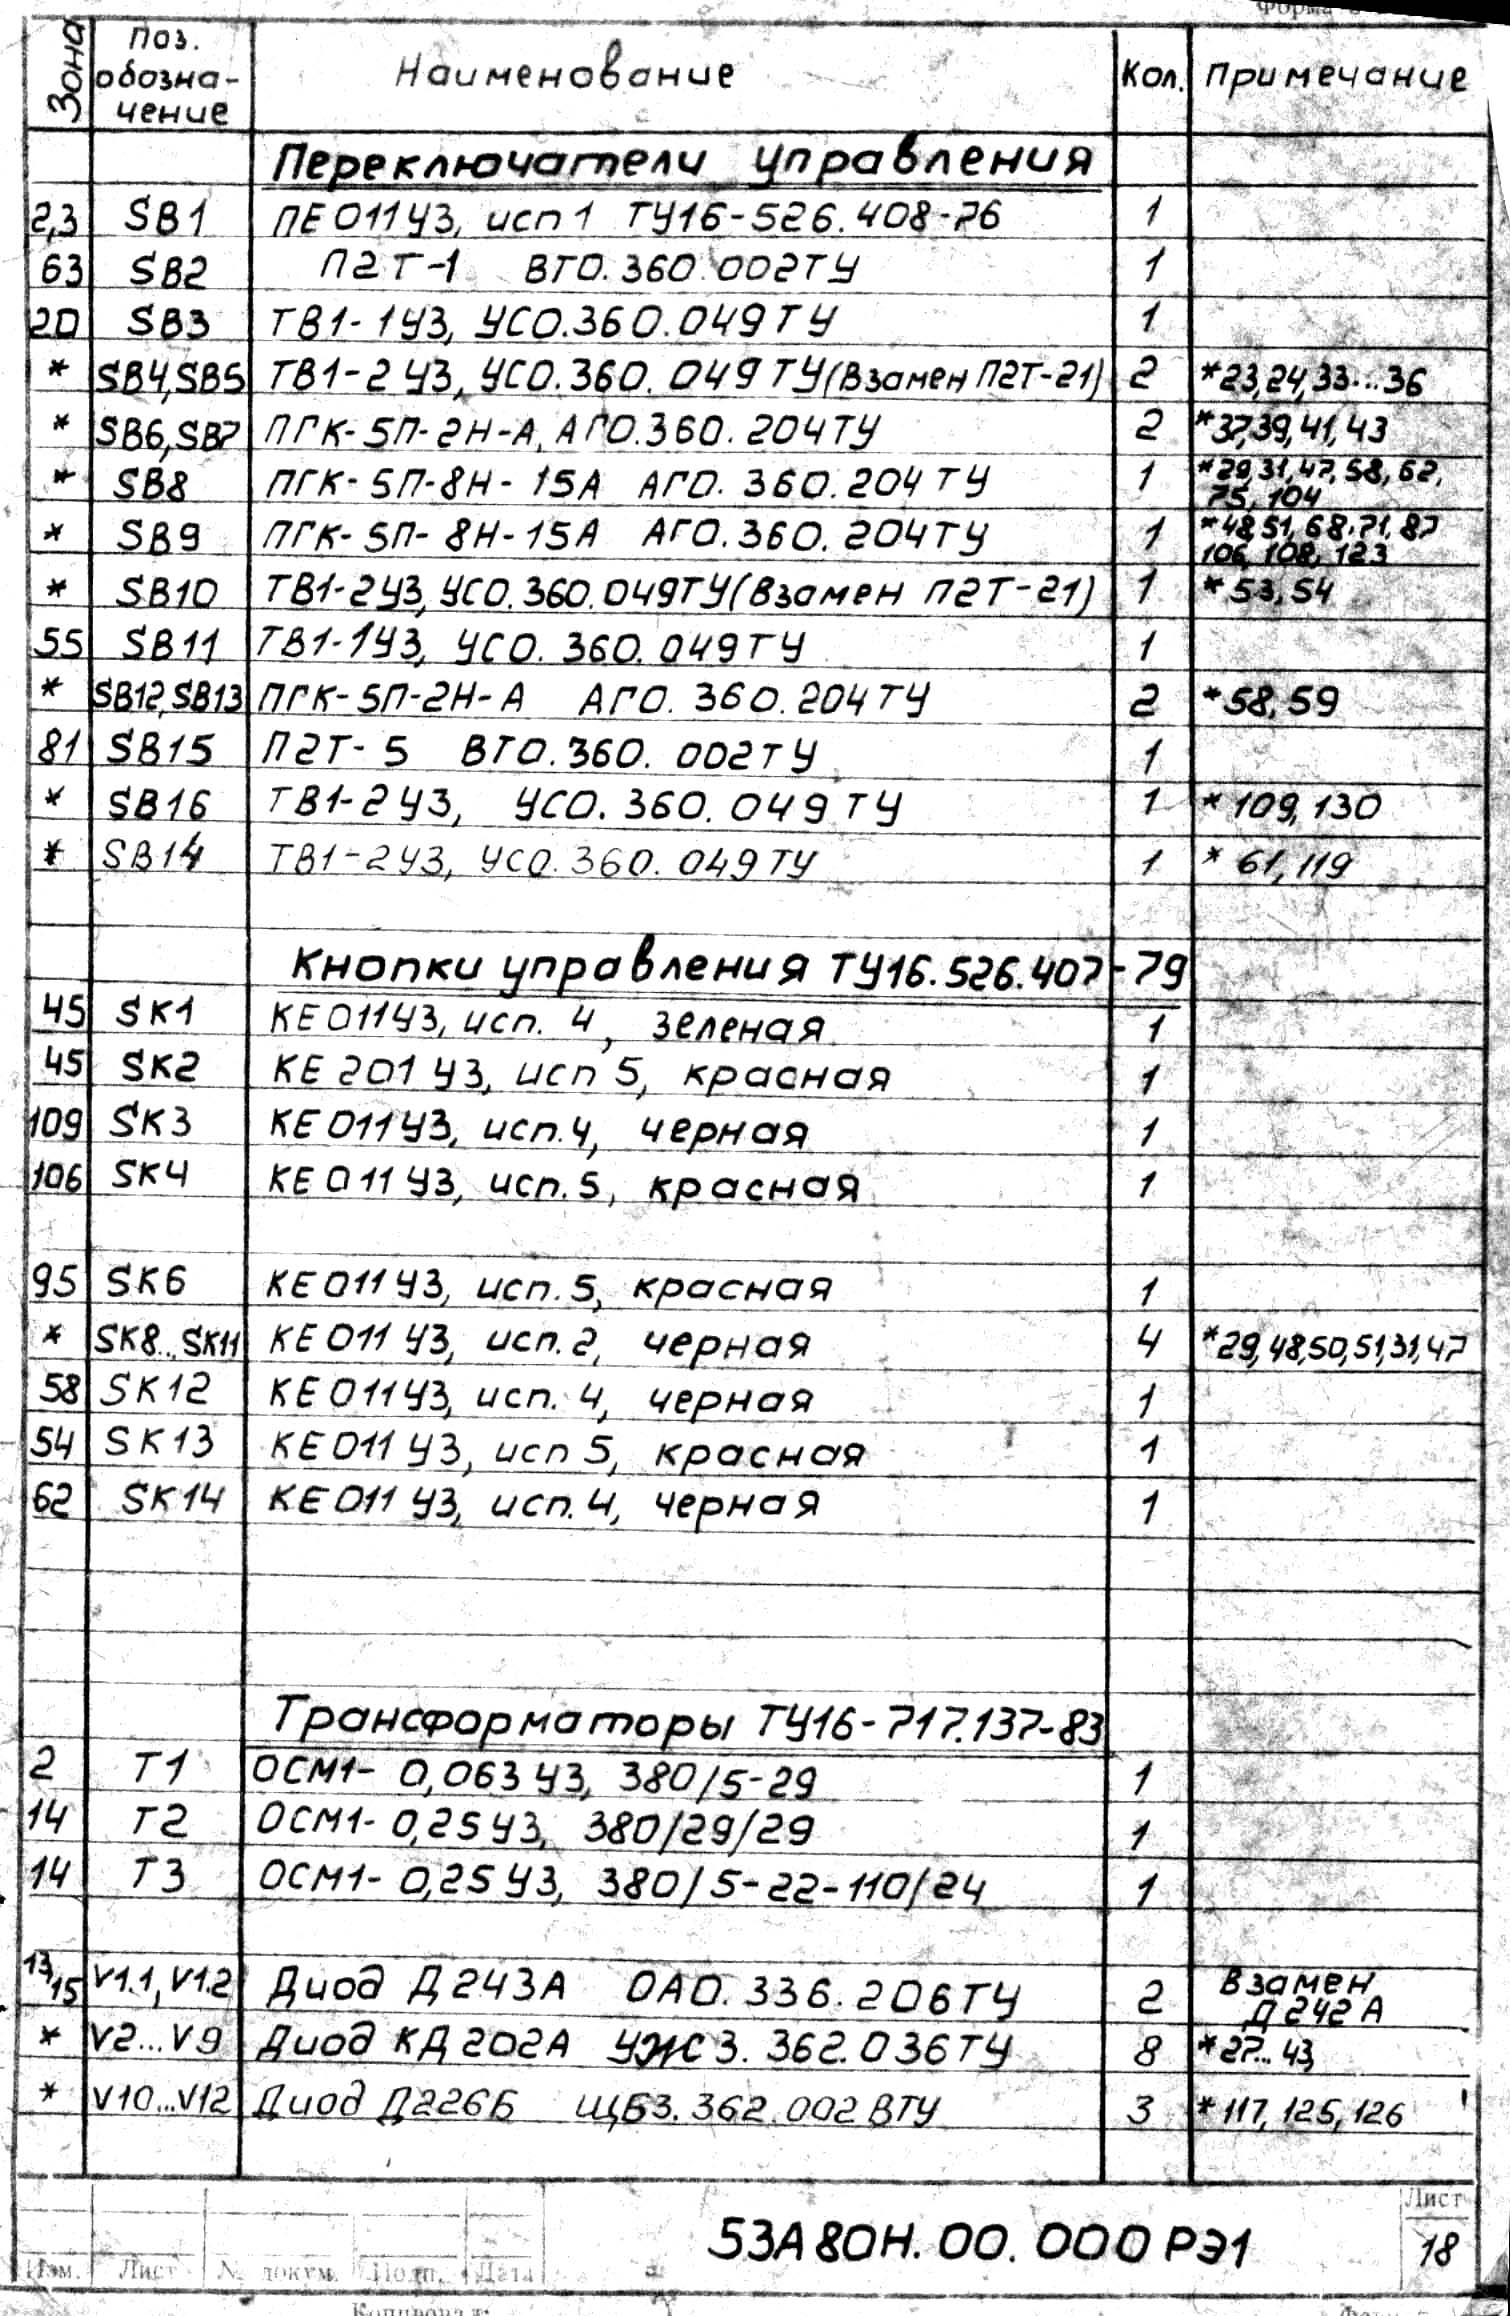 Зона Поз. обозна-чение Наименование Кол. Примечание
Переключатели управления
2,3 SB1 ПЕ011У3, исп 1 ТУ16-526.408-76 1
63 SB2 П2Т-1 ВТО.360.002ТУ 1
20 SB3 ТВ1-1У3, УСО.360.049ТУ 1
* SB4,SB5 ТВ1-2У3, УСО.360.049ТУ(Взамен П2Т-21) 2 *23,24,33...36
* SB6,SB7 ПГК-5П-2Н-А, АГО.360.204ТУ 2 *37,39,41,43
* SB8 ПГК-5П-8Н-15А АГО.360.204ТУ 1 *29,31,47,58,62,
75,104
* SB9 ПГК-5П-8Н-15А АГО.360.204ТУ 1 *48,51,68,71,87
106,108,123
* SB10 ТВ1-2У3, УСО.360.049ТУ(Взамен П2Т-21) 1 *53,54
55 SB11 ТВ1-1У3, УСО.360.049ТУ 1
* SB12,SB13 ПГК-5П-2Н-А АГО.360.204ТУ 2 *58,59
81 SB15 П2Т-5 ВТО.360.002ТУ 1
* SB16 ТВ1-2У3, УСО.360.049ТУ 1 *109,130
* SB14 ТВ1-2У3, УСО.360.049ТУ 1 *61,119
Кнопки управления ТУ16.526.407-79
45 SK1 КЕ011У3, исп. 4, зеленая 1
45 SK2 КЕ201У3, исп 5, красная 1
109 SK3 КЕ011У3, исп.4, черная 1
106 SK4 КЕ011У3, исп.5, красная 1
95 SK6 КЕ011У3, исп.5, красная 1
* SK8..SK11 КЕ011У3, исп.2, черная 4 *29,48,50,51,31,47
58 SK12 КЕ011У3, исп. 4, черная 1
54 SK13 КЕ011У3, исп 5, красная 1
62 SK14 КЕ011У3, исп.4, черная 1
Трансформаторы ТУ16-717.137-83
2 Т1 ОСМ1-0,063У3, 380/5-29 1
14 Т2 ОСМ1-0,25У3, 380/29/29 1
14 Т3 ОСМ1-0,25У3, 380/5-22-110/24 1
13,15 V1.1,V1.2 Диод Д243А ОАО.336.206ТУ 2 Взамен
Д242А
* V2...V9 Диод КД202А УЖ3.362.036ТУ 8 *27...43,
* V10...V12 Диод Д226Б ЩБ3.362.002ВТУ 3 *117,125,126
53А80Н.00.000РЭ1
Лист
18
Изм. Лист № докум. Подп. Дата
Копировал: